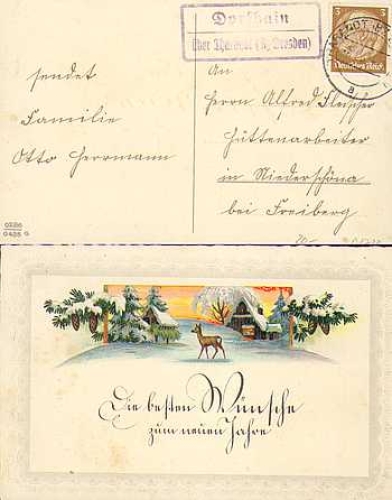 Dorfhain
über Tharandt (Bz. Dresden)
3
Deutsches Reich
a
sendet
Familie
Otto Herrmann
An
Herrn Alfred Fleischer
Hüttenarbeiter
in Niederschöna
bei Freiberg
0486 G
Die besten Wünsche
zum neuen Jahre